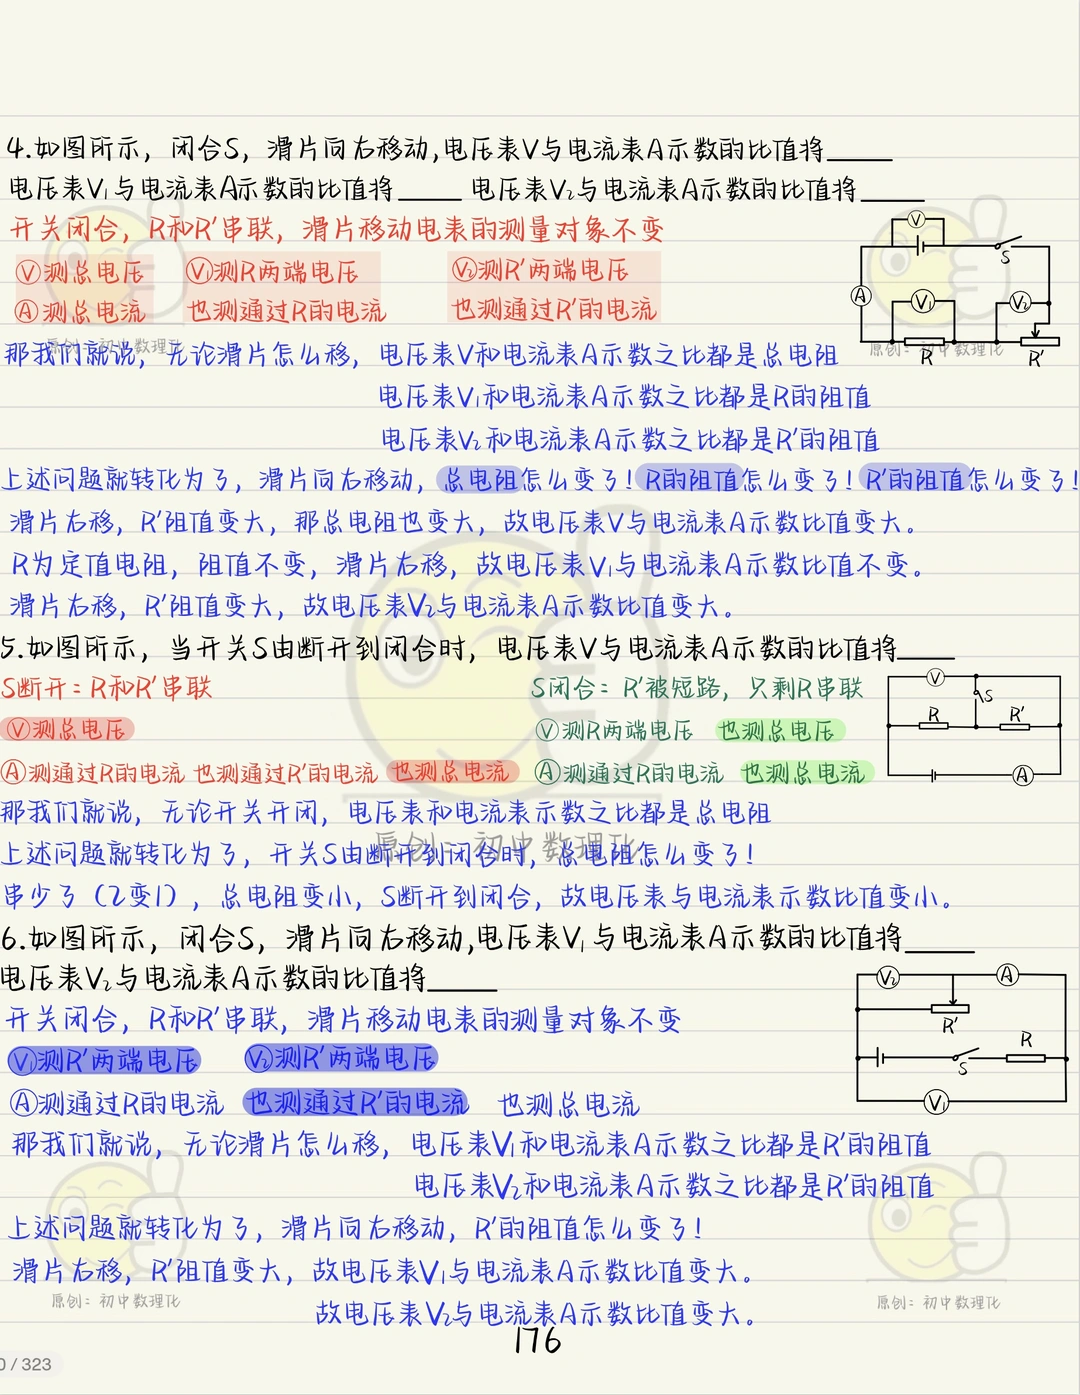 4.如图所示，闭合S，滑片向右移动,电压表V与电流表A示数的比值将____
电压表V₁与电流表A示数的比值将____ 电压表V₂与电流表A示数的比值将____
开关闭合，R和R′串联，滑片移动电表的测量对象不变
Ⓥ测总电压 Ⓥ₁测R两端电压 Ⓥ₂测R′两端电压
Ⓐ测总电流 也测通过R的电流 也测通过R′的电流
V
S
A
V₁
V₂
R
R′
原创：初中数理化
原创：初中数理化
那我们就说，无论滑片怎么移，电压表V和电流表A示数之比都是总电阻
电压表V₁和电流表A示数之比都是R的阻值
电压表V₂和电流表A示数之比都是R′的阻值
上述问题就转化为了，滑片向右移动，总电阻怎么变了！R的阻值怎么变了！R′的阻值怎么变了！
滑片右移，R′阻值变大，那总电阻也变大，故电压表V与电流表A示数比值变大。
R为定值电阻，阻值不变，滑片右移，故电压表V₁与电流表A示数比值不变。
滑片右移，R′阻值变大，故电压表V₂与电流表A示数比值变大。
5.如图所示，当开关S由断开到闭合时，电压表V与电流表A示数的比值将____
S断开：R和R′串联 S闭合：R′被短路，只剩R串联
Ⓥ测总电压 Ⓥ测R两端电压 也测总电压
Ⓐ测通过R的电流 也测通过R′的电流 也测总电流 Ⓐ测通过R的电流 也测总电流
V
S
R
R′
A
那我们就说，无论开关开闭，电压表和电流表示数之比都是总电阻
原创：初中数理化
上述问题就转化为了，开关S由断开到闭合时，总电阻怎么变了！
串少了（2变1），总电阻变小，S断开到闭合，故电压表与电流表示数比值变小。
6.如图所示，闭合S，滑片向右移动,电压表V₁与电流表A示数的比值将____
电压表V₂与电流表A示数的比值将____
开关闭合，R和R′串联，滑片移动电表的测量对象不变
Ⓥ₁测R′两端电压 Ⓥ₂测R′两端电压
Ⓐ测通过R的电流 也测通过R′的电流 也测总电流
V₂
A
R′
R
S
V₁
那我们就说，无论滑片怎么移，电压表V₁和电流表A示数之比都是R′的阻值
电压表V₂和电流表A示数之比都是R′的阻值
上述问题就转化为了，滑片向右移动，R′的阻值怎么变了！
滑片右移，R′阻值变大，故电压表V₁与电流表A示数比值变大。
原创：初中数理化
原创：初中数理化
故电压表V₂与电流表A示数比值变大。
176
0 / 323